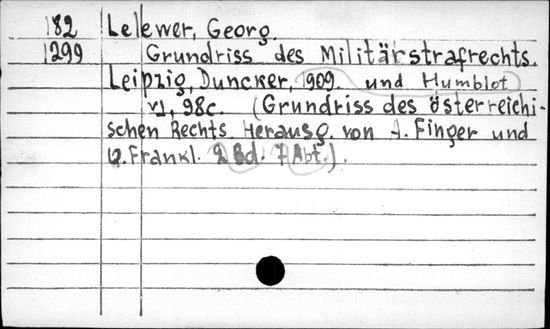 182 Lelewer, Georg.
1299 Grundriss des Militärstrafrechts.
Leipzig, Duncker, 1909. und Humblot
VI, 98c. (Grundriss des österreichi-
schen Rechts Herausg. von A. Finger und
O. Frankl. 2 Bd. 7 Abt.).